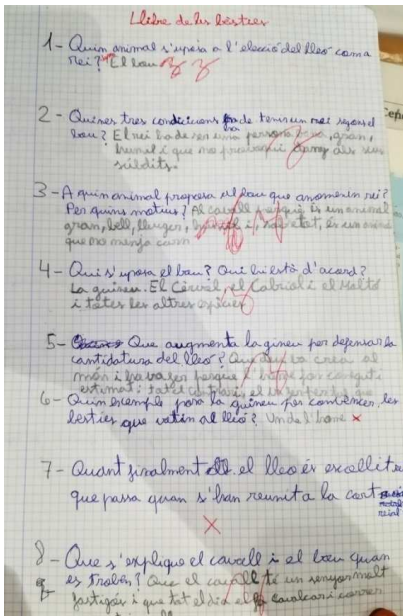 Llibre de les bèsties
1- Quin animal s'uposa a l'elecció del lleó com a
rei? El bou
2- Quines tres condicions ha de tenir un rei segons el
bou? El rei ha de ser una persona gran,
humil i que no provoqui dany als seus
súbdits.
3- A quin animal proposa el bou que anomenin rei?
Per quins motius? Al cavall perquè és un animal
gran, bell, lleuger, i és un animal
que no menja carn
4- Qui s'uposa el bou? Qui hi està d'acord?
La guineu. El Cérvol, el Cabriol i el Moltó
i totes les altres espècies
5- Que augmenta la gineu per defensar la
cantidatura del lleó? Que Deu va crear al
món i perquè l'home fos conegut i
estimat i
6- Quin exemple posa la guineu per convèncer les
bèsties que votin al lleó? Un de l'home
7- Quant finalment el lleó és escollit rei
que passa quan s'han reunit a la cort
reial
8- Que s'explique el cavall i el bou quan
es troben? Que el cavall té un senyor molt
fastigós i que tot el dia el fa cavalcar i córrer